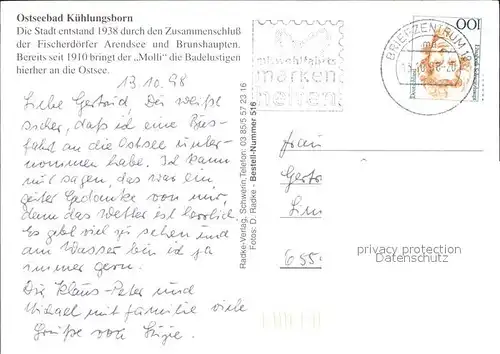 Ostseebad Kühlungsborn
Die Stadt entstand 1938 durch den Zusammenschluß
der Fischerdörfer Arendsee und Brunshaupten.
Bereits seit 1910 bringt der „Molli" die Badelustigen
hierher an die Ostsee.
13.10.98
Liebe Gertrud, Du weißt
sicher, daß ich eine Bus-
fahrt an die Ostsee unter-
nommen habe. Ich kann
nur sagen, das war ein
guter Gedanke von mir,
denn das Wetter ist herrlich.
Es gibt viel zu sehen und
am Wasser bin ich ja
immer gern.
Die Klaus-Peter und
Michael mit Familie viele
Grüße von
Radke-Verlag, Schwerin, Telefon: 03 85/5 57 23 16
Fotos: D. Radke - Bestell-Nummer 516
mit wohlfahrts
marken
helfen
BRIEFZENTRUM
100
Frau
Gertr
Lin
655
privacy protection
Datenschutz